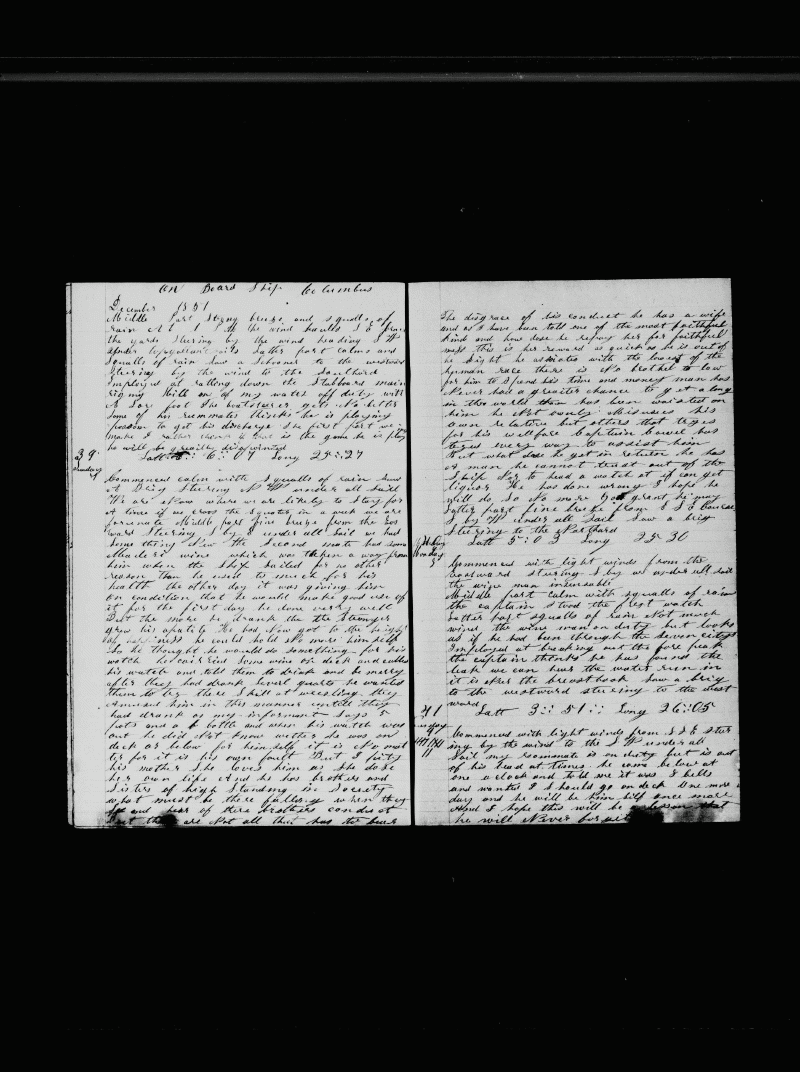 On Board Ship Columbus
December 1851
Middle Part Strong breeze and squalls of
rain At 1 PM the wind hauls S E brace
the yards Steering by the wind heading S W
under topgallant sails Latter part calms and
Squalls of rain saw a Schooner to the westward
Steering by the wind to the Southard
Employed at ratling down the Stabboard main
riging Still one of my watch off duty with
A Sor foot The boatsteerer gets No better
Some of his roommates thinks he is playing
possom to get his discharge The first part we
make I rather think that is the game he is play
he will be greatly disapointed
Latt 6 : 07 Long 25 : 27
39
Sunday
Commenced calm with Squalls of rain saw
A Brig Steering N W under all Sail
We are Now where we are likely to Stay for
A time if we cross the Equator in a week we are
fortunate Middle part fine breeze from the Eas
ward Steering S by E under all Sail we had
Some thing New the Second mate had some
Maderi wine which was taken a way from
him when the Ship Sailed for no other
reason than he used to much for his
health the other day it was giving him
on condition that he would make good use of
it for the first day he done verry well
But the more he drank the the Stronger
grew his apatite He had Now got to the hight
of happiness he could hold No more him Self
So he thought he would do something for his
watch he carried Some wine on deck and called
his watch and told them to drink and be merry
after they had drank Severl quarts he wanted
them to try there Skill at wrestling they
Amused him in this manner untill they
had drank as my informant Says 5
pots and a bottle and when his watch was
out he did Not know wether he was on
deck or below for him Self it is No mat
ter for it is his own fault But I pitty
his mother She loves him as She dose
her own life And he has brothers and
Sisters of high Standing in Society
what must be there fallings when they
and hear of there brothers conduct
But they are Not all that has to bear
The disgrace of his conduct he has a wife
and as I have been told one of the most faithful
kind and how dose he repay her for faithful
ness this is her reward as quick as he is out of
he Sight he asociates with the lowest of the
human race there is No brothel to low
for him to Spend his time and money man has
Never had a greater chance to get along
in the world than has been waisted on
him he Not ownly Misuses his
own relative but others that tryes
for his wellfare Captain Cowel has
tryed every way to assist him
But what dose he get in return he has
A man he cannot trust out of the
Ship Nor to head a watch if can get
liquor He has done wrong I hope he
will do So No more God grant he may
Latter part fine breeze from E S E Course
S by W under all Sail Saw a brig
Steering to the Northard
Latt 5 : 03 Long 25 30
Monday
Commenced with light winds from the
eastward stering S by W under all Sail
the wine man insensable
Middle part Calm with squalls of rain
the captain stood the first watch
Latter part squalls of rain Not much
wind the wine man on duty but looks
as if he had been through the Seven citys
Employed at breaking out the fore peak
the captain thinks he has found the
leak we can hear the water run in
it is after the breasthook Saw a brig
to the westward steering to the west
ward
Latt 3 : 51 : Long 26 : 05
41
Commenced with light winds from S S E Steer
ing by the wind to the S W under all
Sail my roommate is on duty but is out
of his head at times he come below at
one oclock and told me it was 8 bells
and wanted I Should go on deck One more
day and he will be him Self once more
And I hope this will be a lesson that
he will Never forget